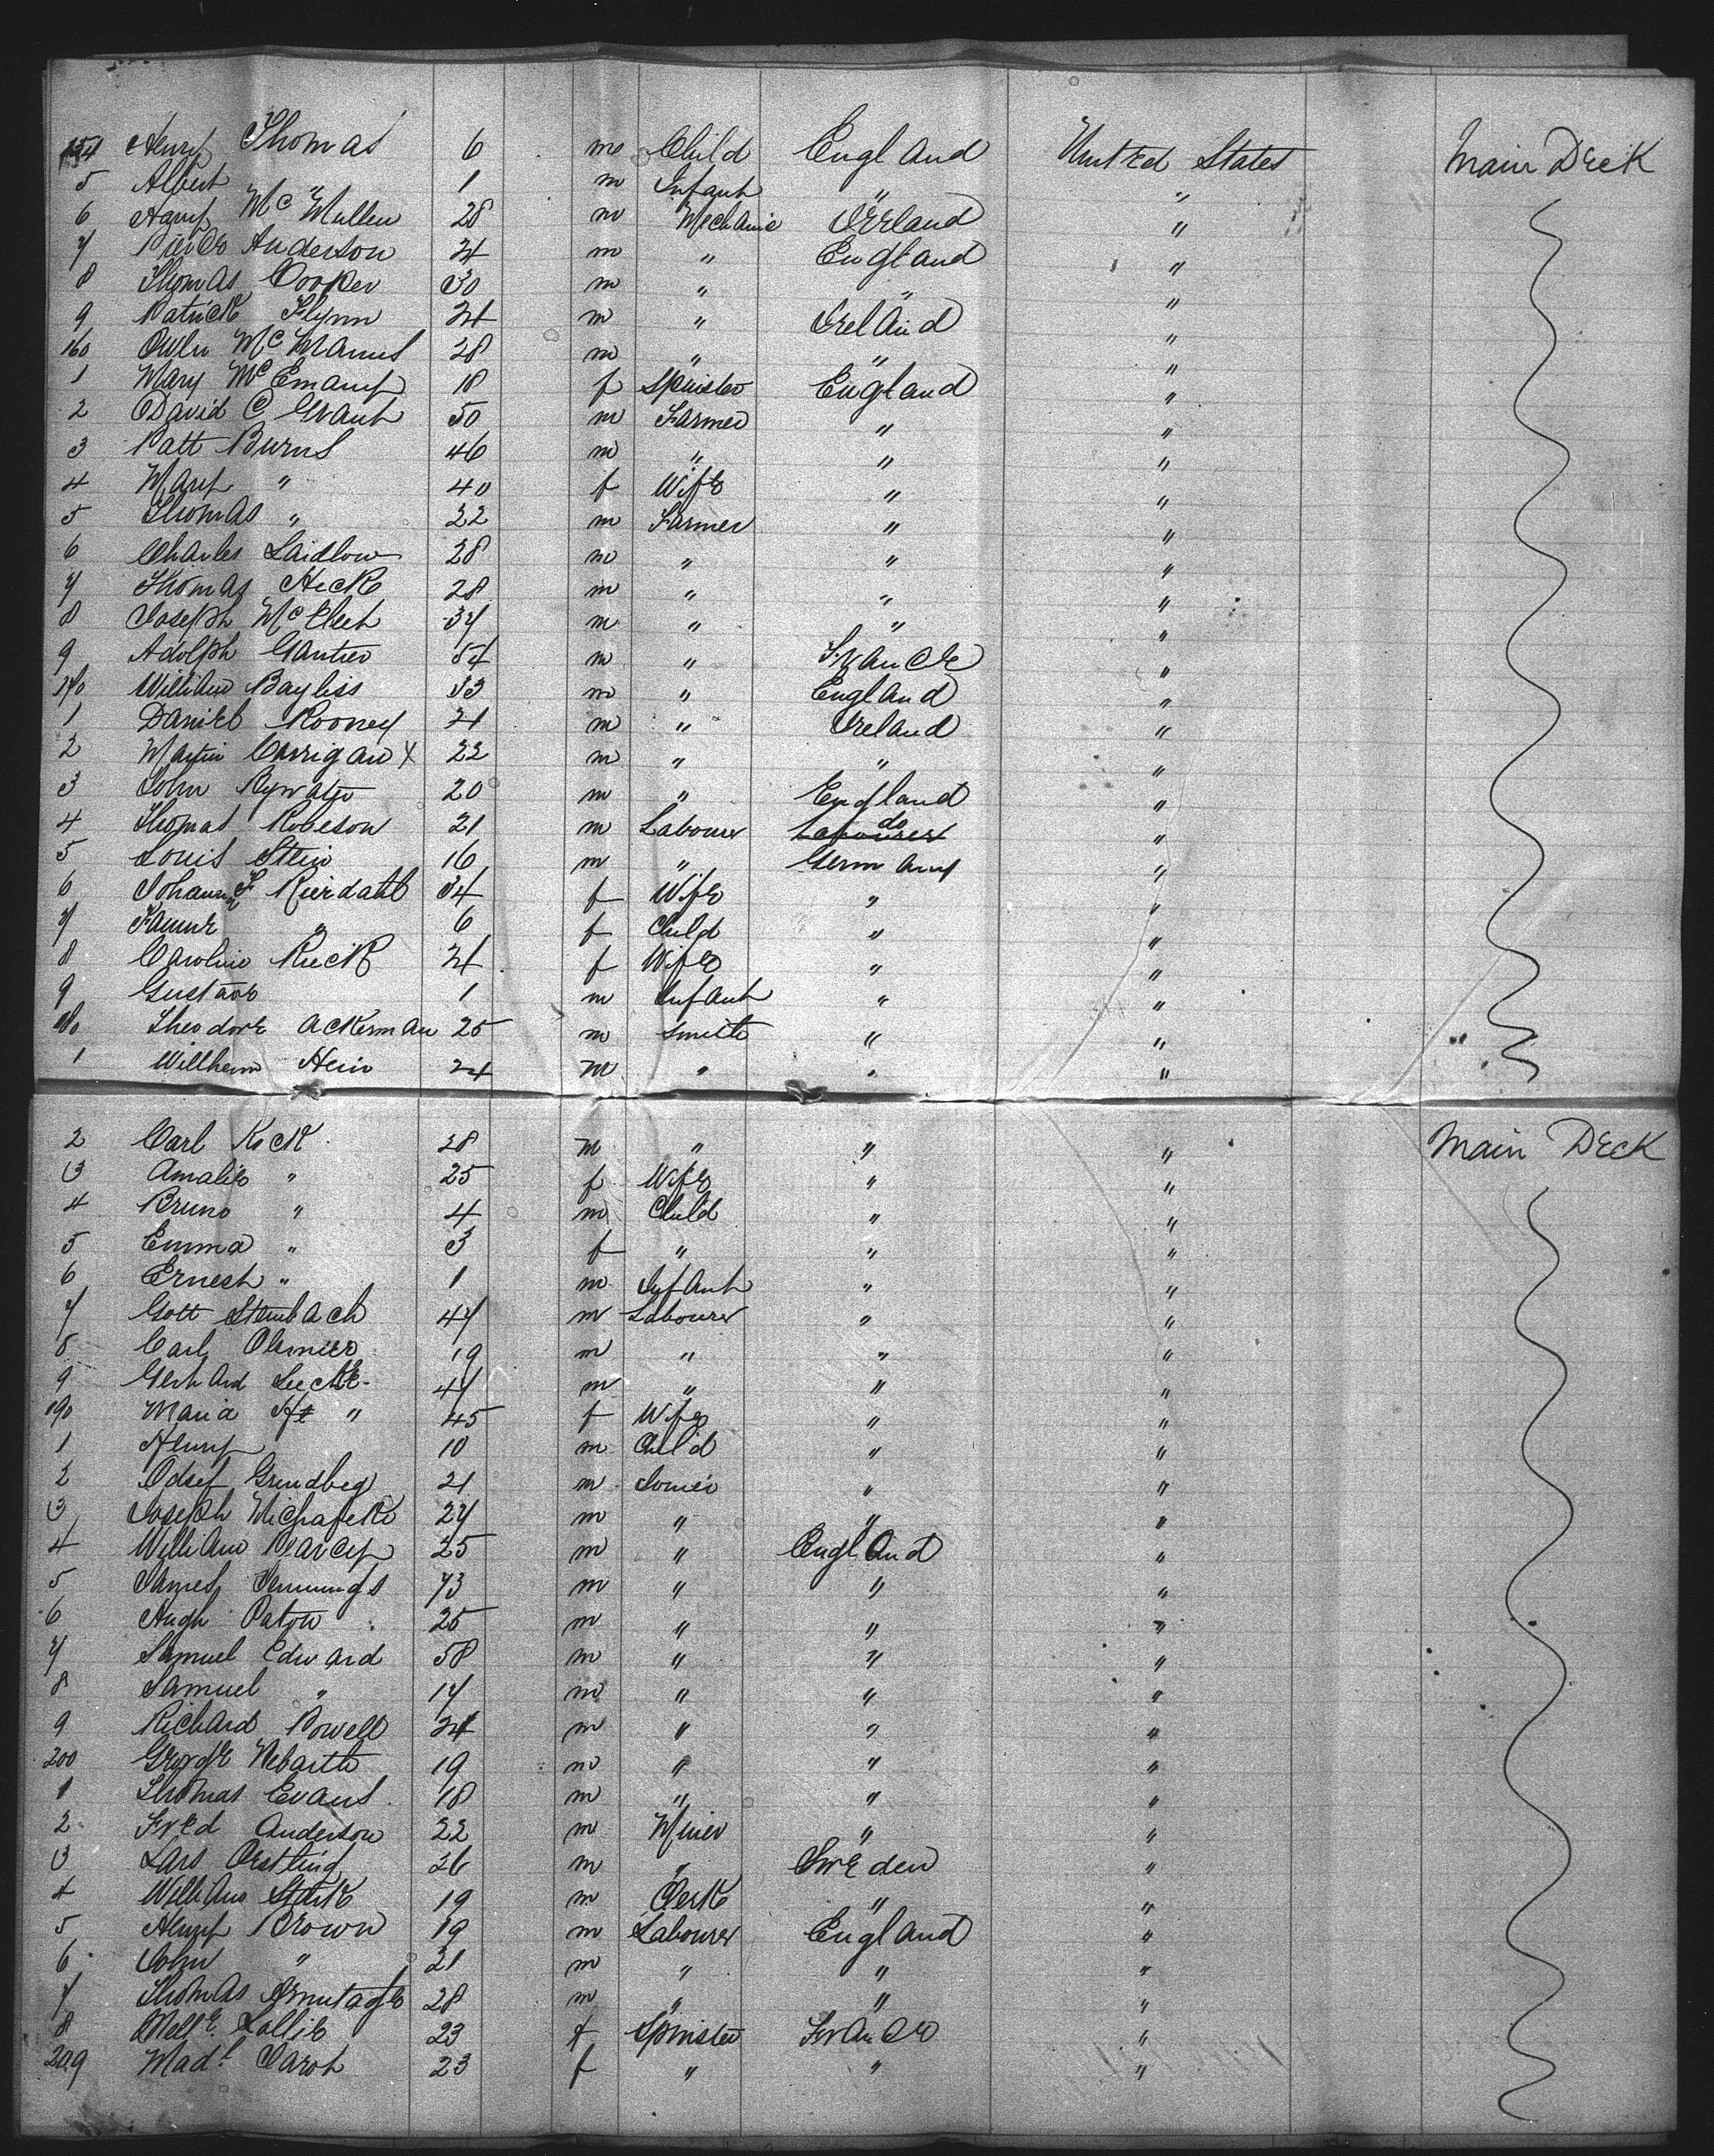 154 Henry Thomas 6 m Child England United States Main Deck
5 Albert " 1 m Infant " "
6 McMullen 28 m Mechanic Irland "
7 Anderson 24 m " England "
8 Thomas Cooper 30 m " " "
9 Patrick Flynn 24 m " Ireland "
160 Owen McManus 28 m " " "
1 Mary 18 f Spinster England "
2 David C Grant 50 m Farmer " "
3 Patt Burns 46 m " " "
4 Mary " 40 f Wife " "
5 Thomas " 22 m Farmer " "
6 Charles Laidlow 28 m " " "
7 Thomas Heck 28 m " " "
8 Joseph 37 m " " "
9 Adolph Gautier 54 m " France "
170 William Bayliss 33 m " England "
1 Daniel Rooney 21 m " Ireland "
2 Martin Carrigan X 22 m " " "
3 John 20 m " England "
4 Thomas Robeson 21 m Labourer do "
5 Louis Stein 16 m " Germany "
6 34 f Wife " "
7 Fannie " 6 f Child " "
8 Caroline Rieck 21 f Wife " "
9 Gustave 1 m Infant " "
180 Theodore Ackerman 25 m Smith " "
1 Willhem Hein 24 m " " "
2 Carl Kock 28 m " " " Main Deck
3 Amalie " 25 f Wife " "
4 Bruno " 4 m Child " "
5 Emma " 3 f " " "
6 Ernest " 1 m Infant " "
7 Gott Steinbach 47 m Labourer " "
8 Carl 19 m " " "
9 Gerhard 47 m " " "
190 Maria " 45 f Wife " "
1 Henry 10 m Child " "
2 21 m " "
3 Joseph 27 m " " "
4 William Pearcey 25 m " England "
5 James Jennings 73 m " " "
6 Hugh Paton 25 m " " "
7 Samuel Edward 58 m " " "
8 Samuel " 17 m " " "
9 Richard Powell 24 m " " "
200 George 19 m " " "
1 Thomas Evans 18 m " " "
2 Fred Anderson 22 m Miner " "
3 Lars Oestling 26 m " Sweden "
4 William Stark 19 m Clerk " "
5 Henry Brown 19 m Labourer England "
6 John " 21 m " " "
7 Thomas 28 m " " "
8 Melle. Lallie 23 f Spinster France "
209 Madl 23 f " " "